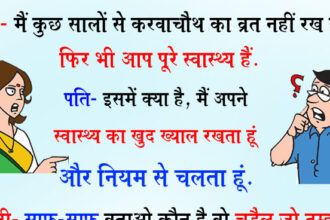 - मैं कुछ सालों से करवाचौथ का व्रत नहीं रख
फिर भी आप पूरे स्वास्थ्य हैं.
पति- इसमें क्या है, मैं अपने
स्वास्थ्य का खुद ख्याल रखता हूं
और नियम से चलता हूं.
साफ-साफ बताओ कौन है वो चुड़ैल जो